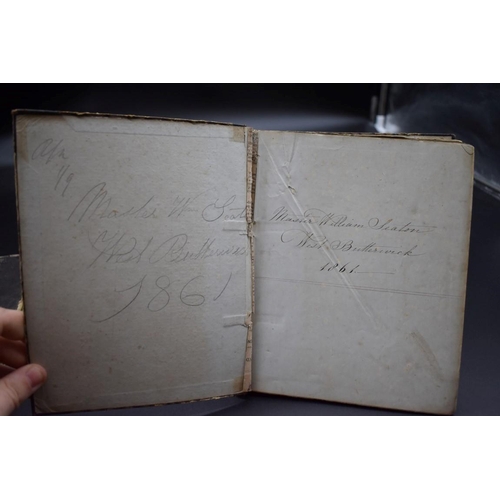 Master W Seaton
West Butterwick
1861
Master William Seaton
West Butterwick
1861